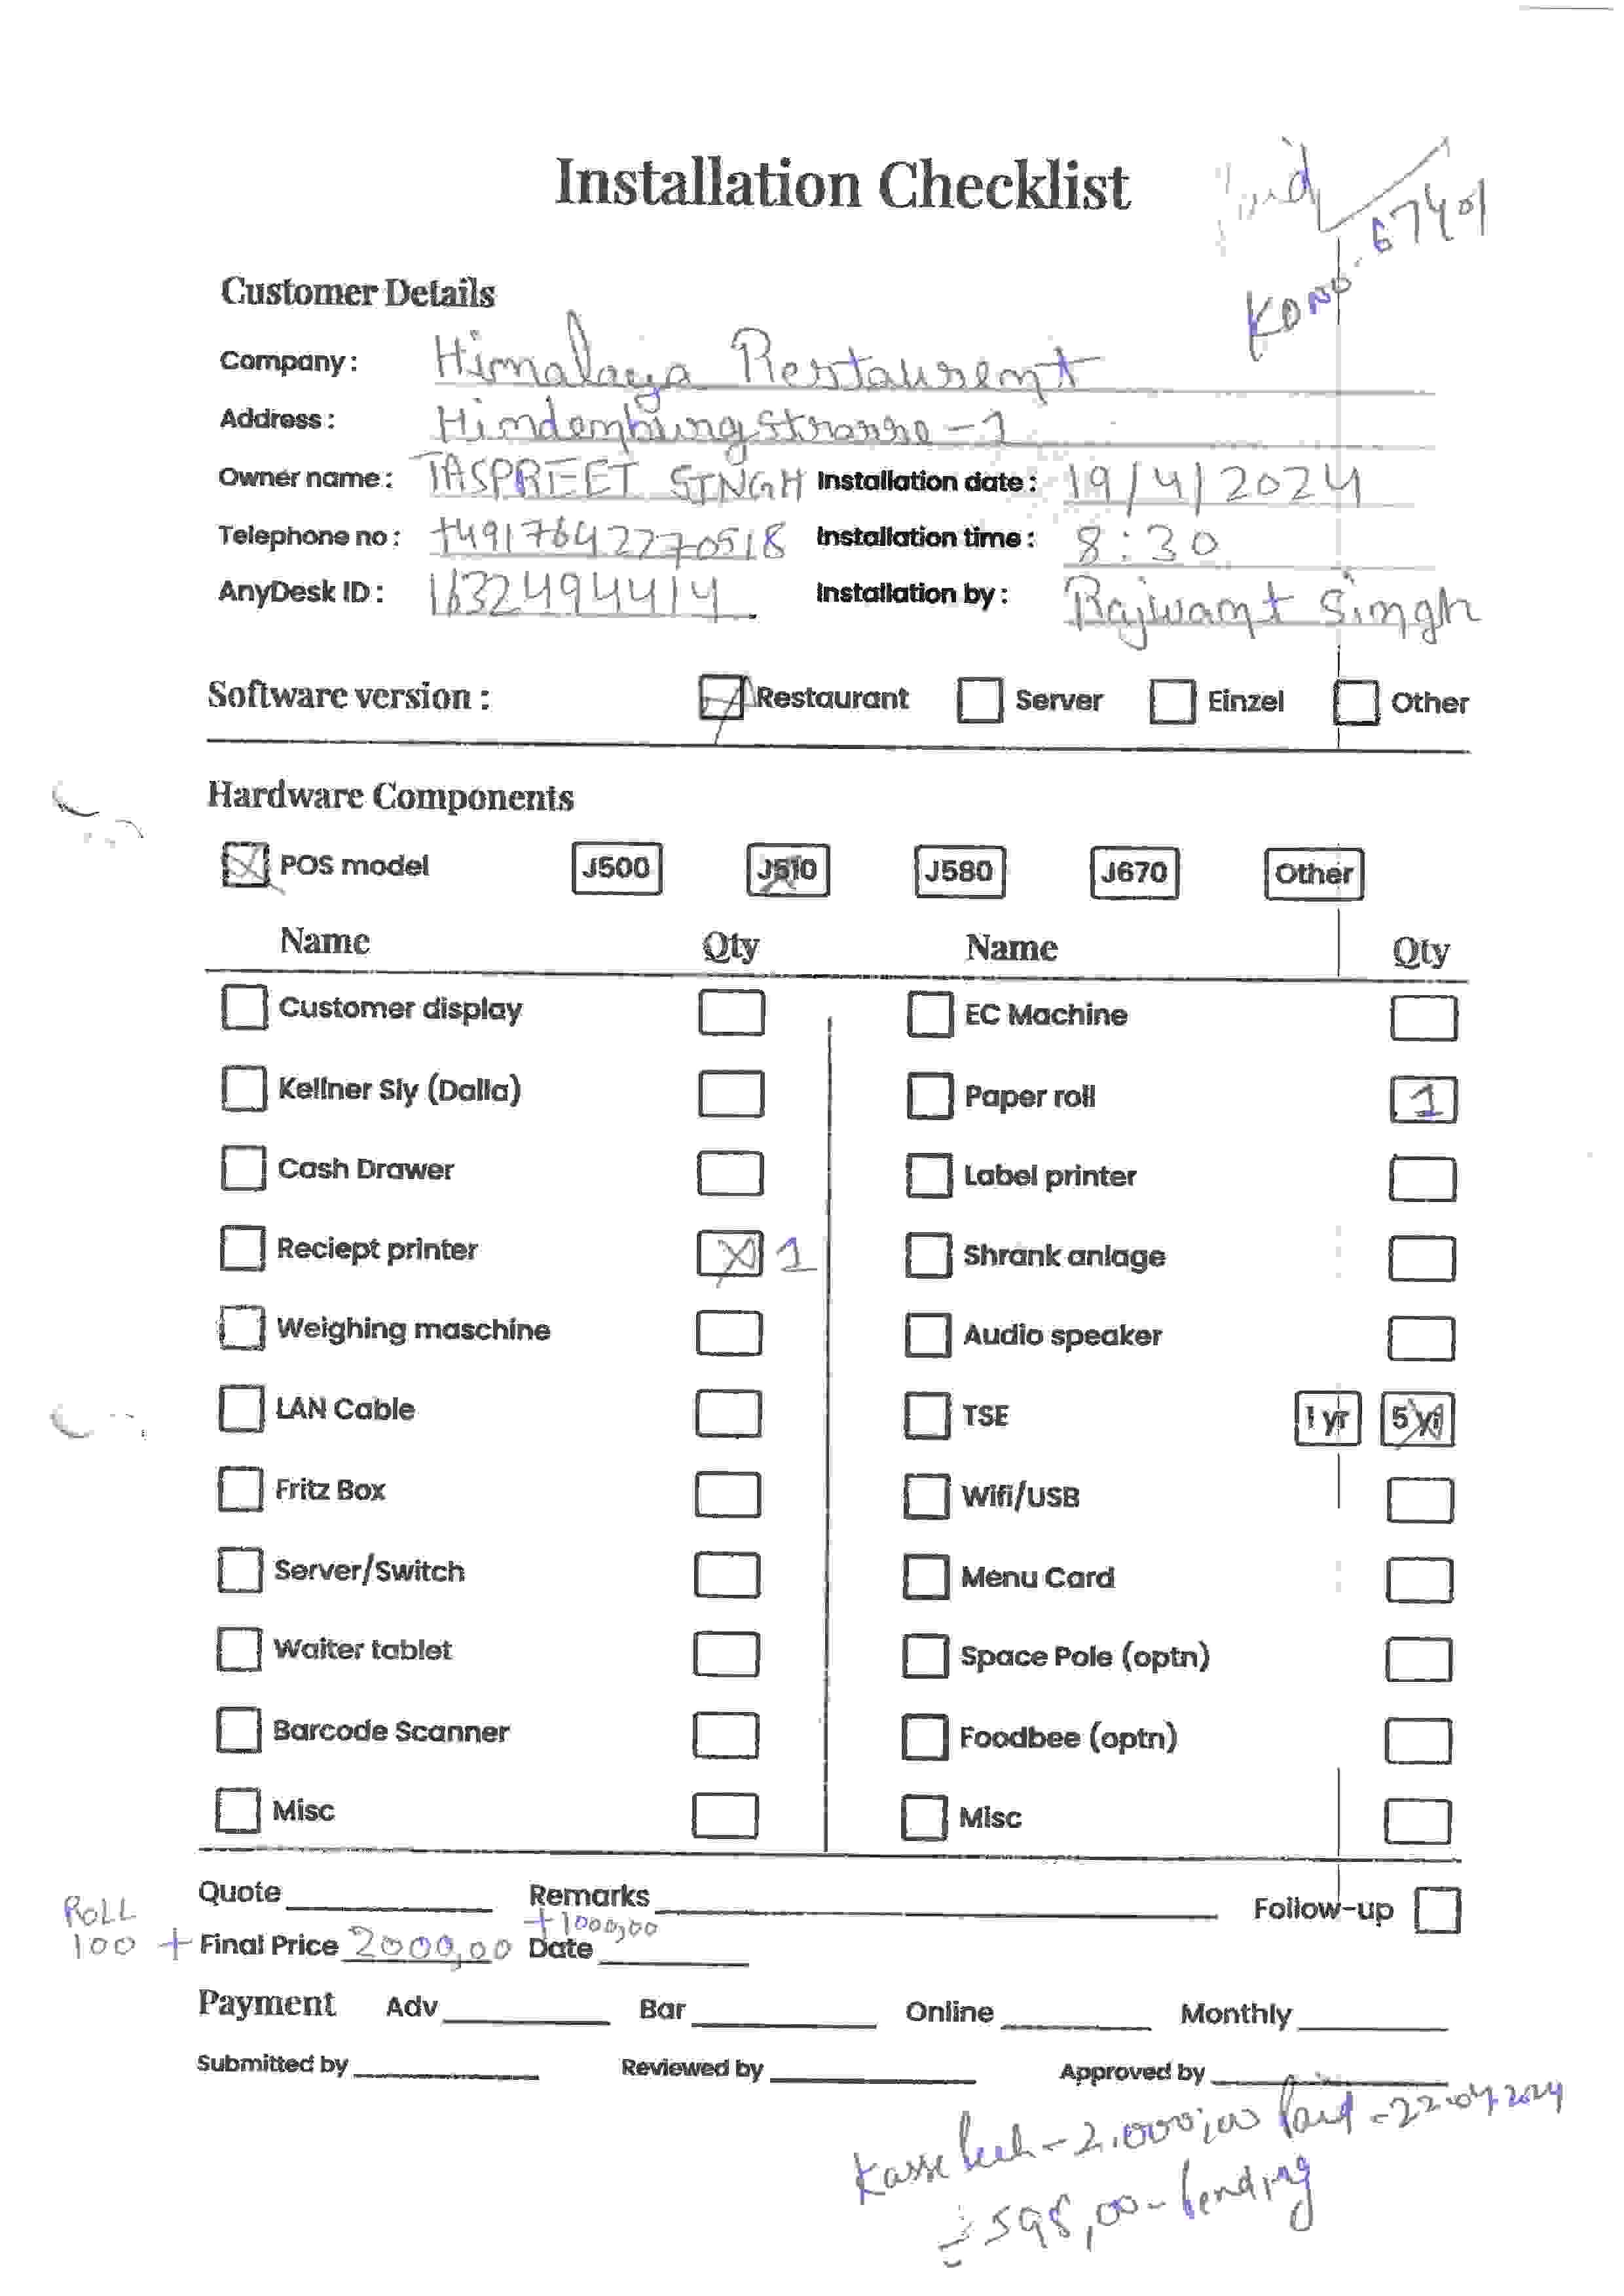 Installation Checklist
Paid
KDNO-67401
Customer Details
Company: Himalaya Restaurent
Address: Hindenburgstrasse-1
Owner name: TASPREET SINGH Installation date: 19/4/2024
Telephone no: +4917642270518 Installation time: 8:30
AnyDesk ID: 1632494414 Installation by: Rajwant Singh
Software version: Restaurant Server Einzel Other
Hardware Components
POS model J500 J510 J580 J670 Other
Name Qty Name Qty
Customer display EC Machine
Kellner Sly (Dalla) Paper roll 1
Cash Drawer Label printer
Reciept printer X 1 Shrank anlage
Weighing maschine Audio speaker
LAN Cable TSE 1 yr 5 yr
Fritz Box Wifi/USB
Server/Switch Menu Card
Waiter tablet Space Pole (optn)
Barcode Scanner Foodbee (optn)
Misc Misc
Quote Remarks Follow-up
ROLL +1000,00
100 + Final Price 2000,00 Date
Payment Adv Bar Online Monthly
Submitted by Reviewed by Approved by
Kasse - 2.000,00 Paid - 22.04.2024
598,00 - Pending